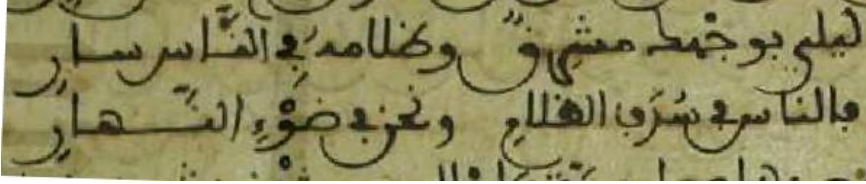 ليلي بوجهك مشرق وظلامه في الناس سار
فالناس في سدف الظلام ونحن في ضوء النهار